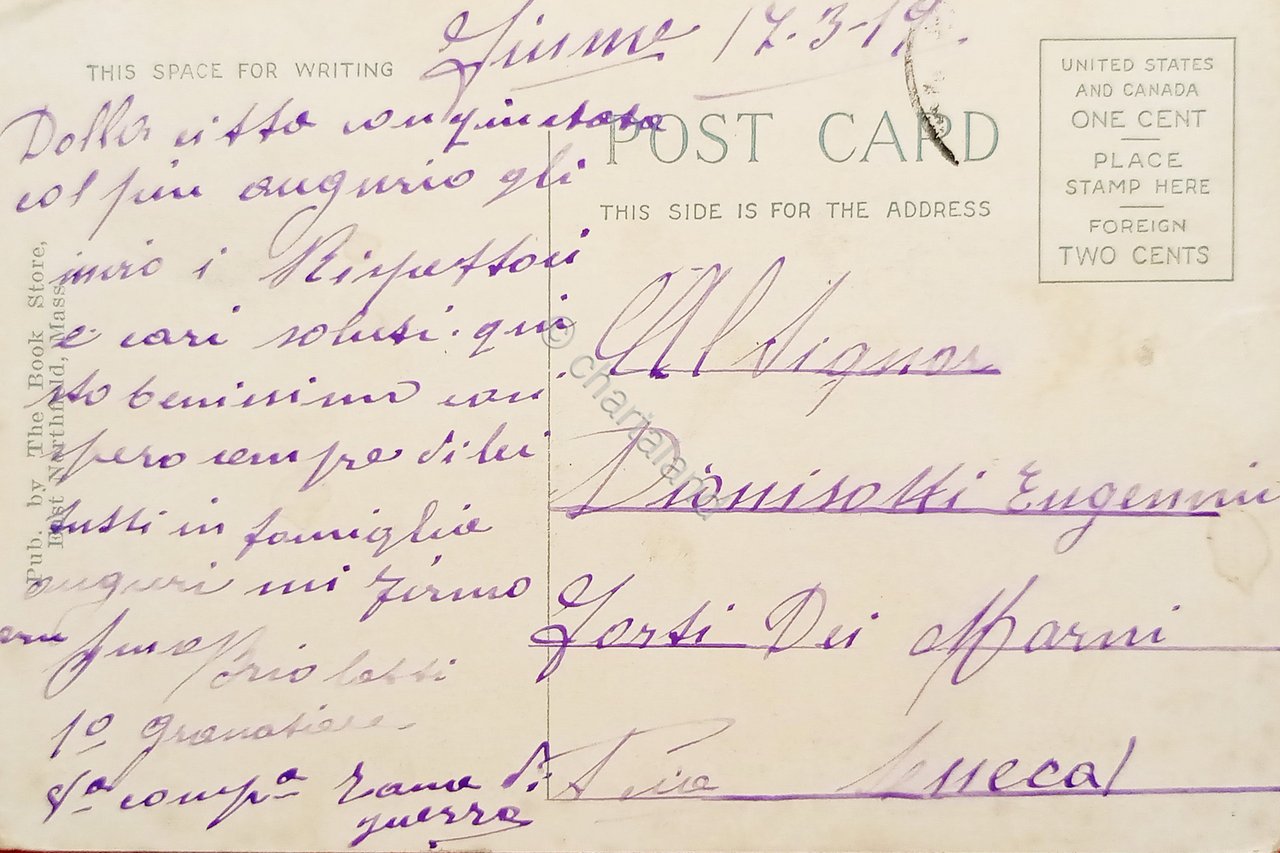 Fiume 17.3-19.
THIS SPACE FOR WRITING
Dalla citta conquistata
col piu augurio gli
invio i Rispettosi
e cari saluti. qui
sto benissimo cosi
spero sempre di lei
tutti in famiglia
auguri mi firmo
1º Granatiere
8ª compª zona di
guerra
Pub. by The Book Store,
East Northfield, Mass.
POST CARD
THIS SIDE IS FOR THE ADDRESS
UNITED STATES
AND CANADA
ONE CENT
PLACE
STAMP HERE
FOREIGN
TWO CENTS
Al Signor
Dionisotti Eugennio
Forti Dei Marmi
(Lucca)
© chartaland